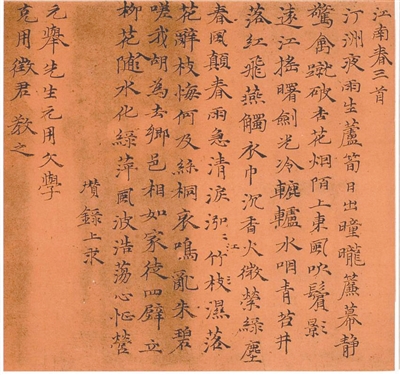 江南春三首
汀洲夜雨生蘆筍日出曈曨簾幕静
驚禽蹴破杏花烟陌上東風吹鬢影
遠江摇曙劍光冷轆轤水咽青苔井
落紅飛燕觸衣巾沉香火微縈綠塵
春風顛春雨急清淚泓〻江竹枝濕落
花辭枝悔何及絲桐哀鳴亂朱碧
嗟我胡為去鄉邑相如家徒四壁立
柳花隨水化綠萍風波浩蕩心怔營
瓚錄上求
元舉先生元用文學
克用徵君教之